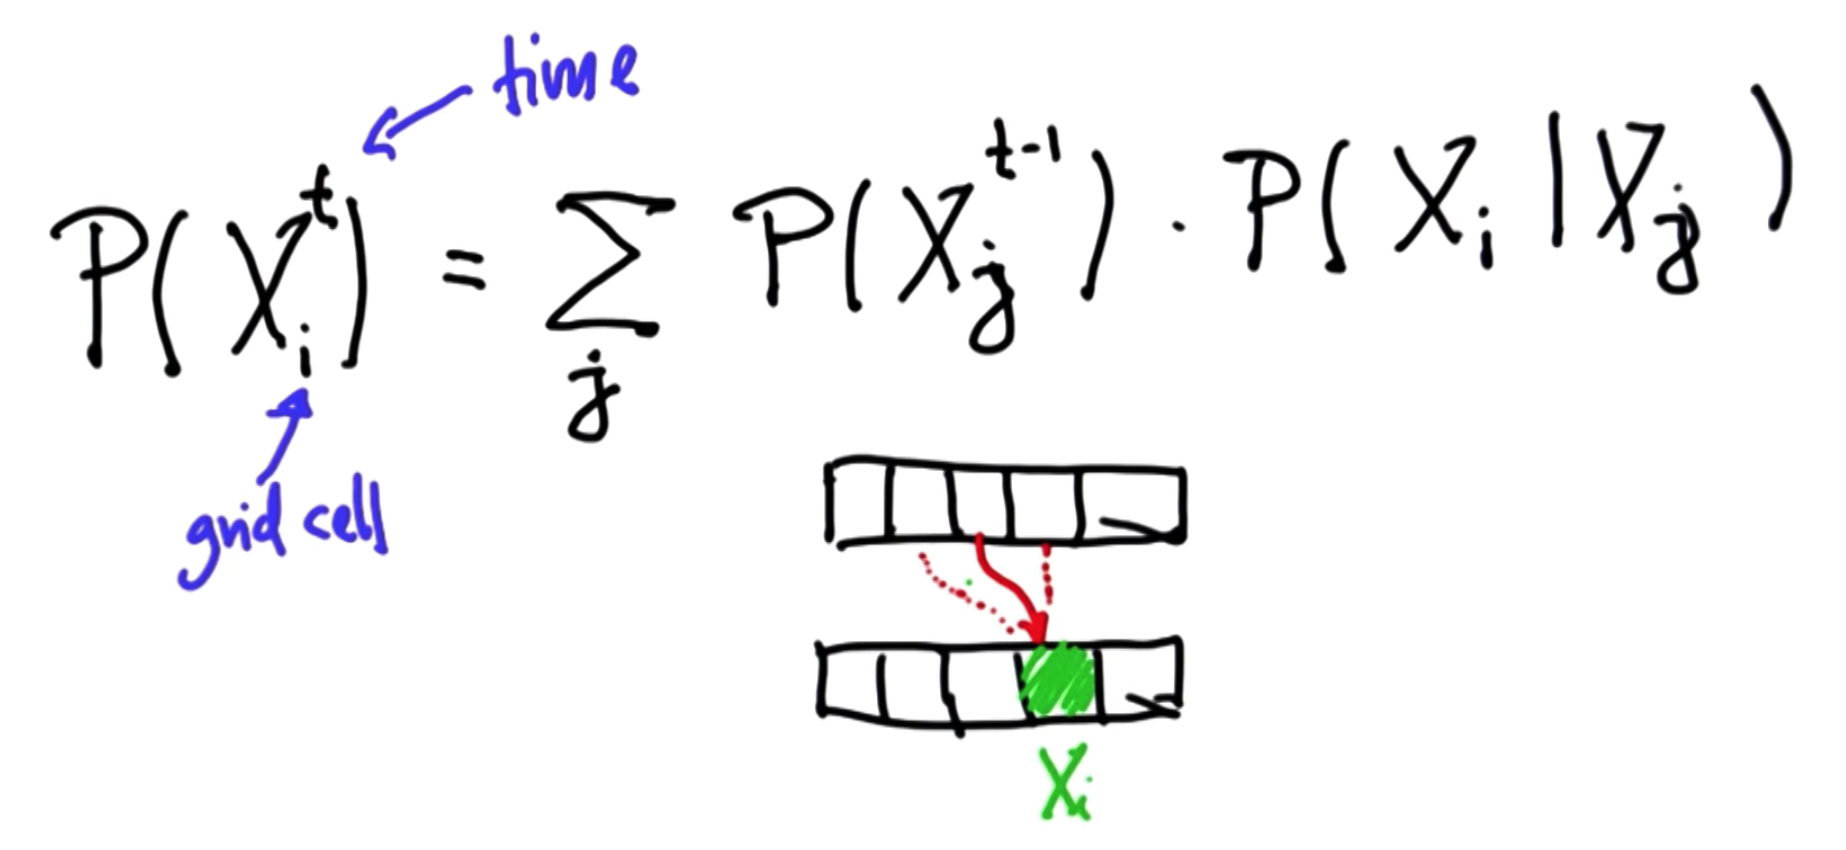 time
P(X_i^t) = Σ_j P(X_j^{t-1}) · P(X_i | X_j)
grid cell
X_i